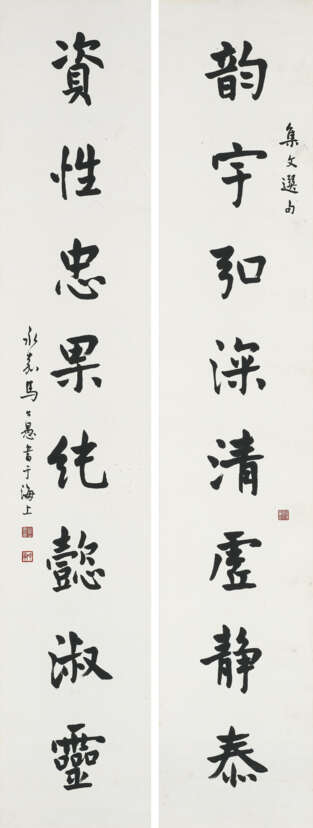 韵宇弘深清虛静泰
集文選句
資性忠果純懿淑靈
永嘉馬公愚書于海上